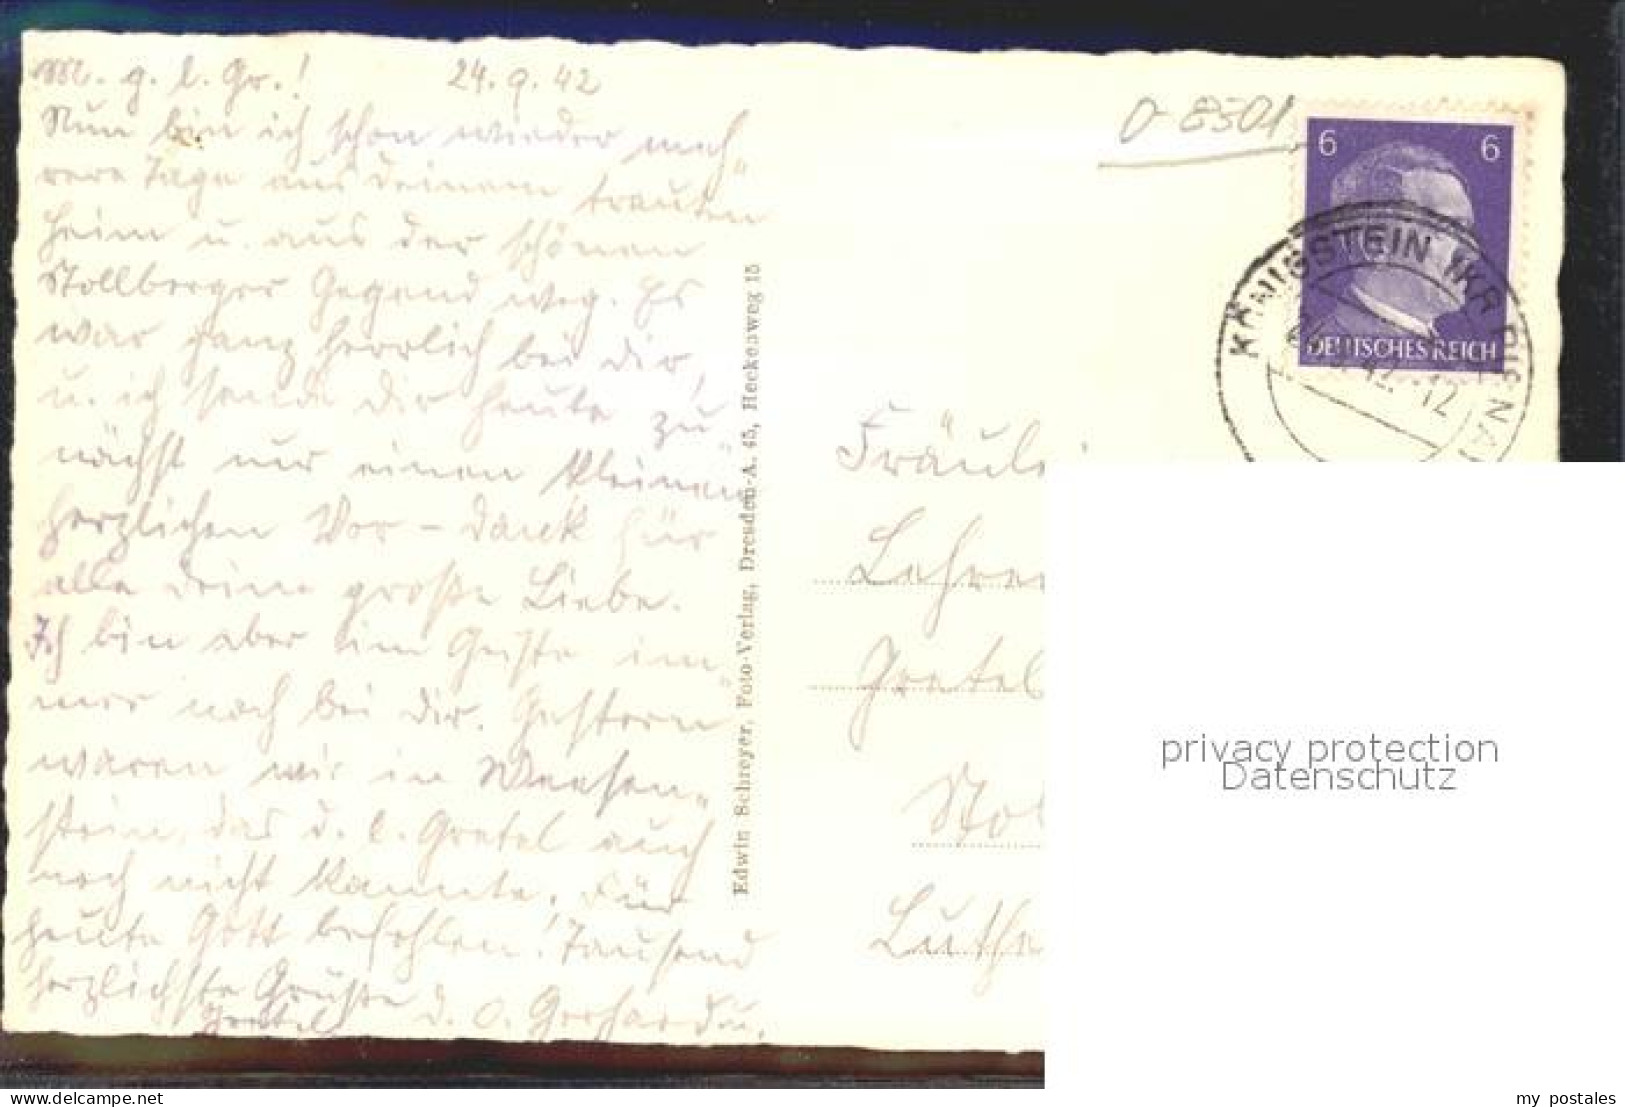 M. g. l. Gr.! 24.9.42
Nun bin ich schon wieder meh"
rere Tage aus deinem trauten
Heim u. aus der schönen
Stollberger Gegend weg. Es
war ganz herrlich bei dir,
u. ich sende dir heute zu"
nächst nur einen kleinen
herzlichen Vor-dank für
alle deine große Liebe.
Ich bin aber im Geiste im"
mer noch bei dir. Gestern
waren wir in Weesen"
stein, das d. l. Gretel auch
noch nicht kannte. Für
heute Gott befohlen! Tausend
herzlichste Grüße d. O. Gerhard u.
Gretel
Edwin Schreyer, Foto-Verlag, Dresden-A. 45, Heckenweg 15
0-8301
6 6
DEUTSCHES REICH
KÖNIGSTEIN (KR PIRNA
42.-12
Fräule
Lehre
Gretel
Stol
Luthe
privacy protection
Datenschutz
ansichtskarten-center
my postales